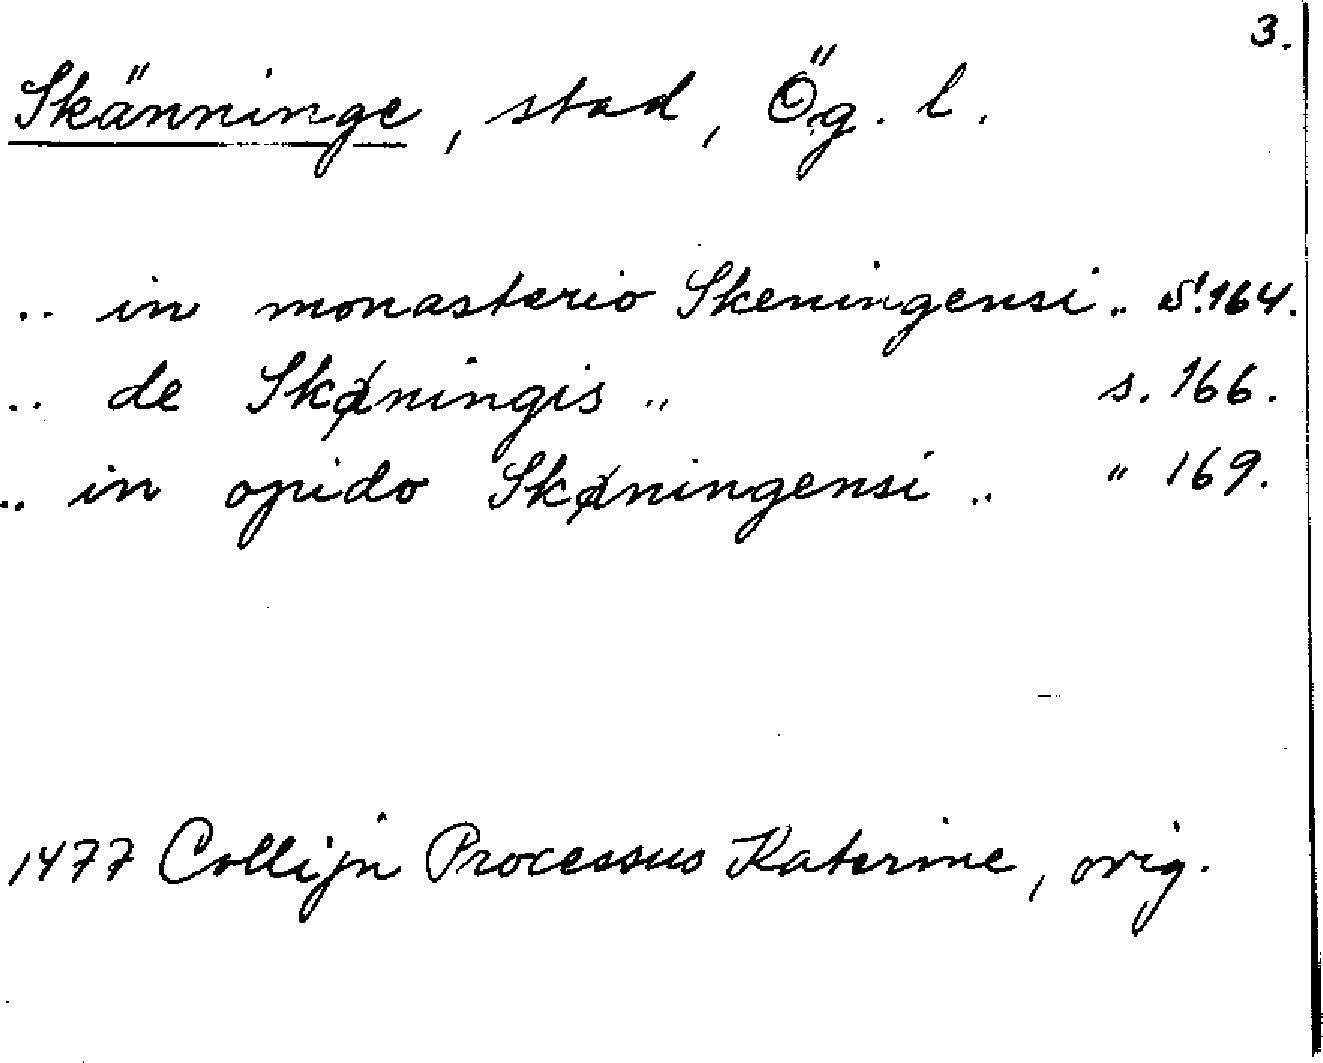 3.
Skänninge, stad, Ög. l.
.. in monasterio Skeningensi .. S. 164.
.. de Skøningis .. s. 166.
.. in opido Skøningensi .. " 169.
1477 Collijn Processus Katerine, orig.